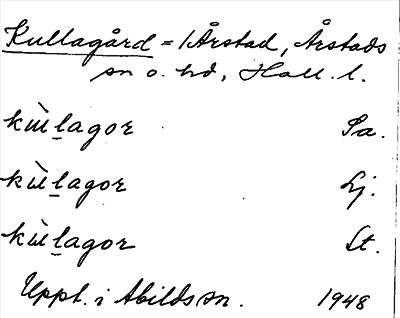 Kullagård = 1 Årstad, Årstads
sn o. hd, Hall. l.
kùlagor Sa.
kùlagor Lj.
kùlagor St.
Uppt. i Abilds sn. 1948